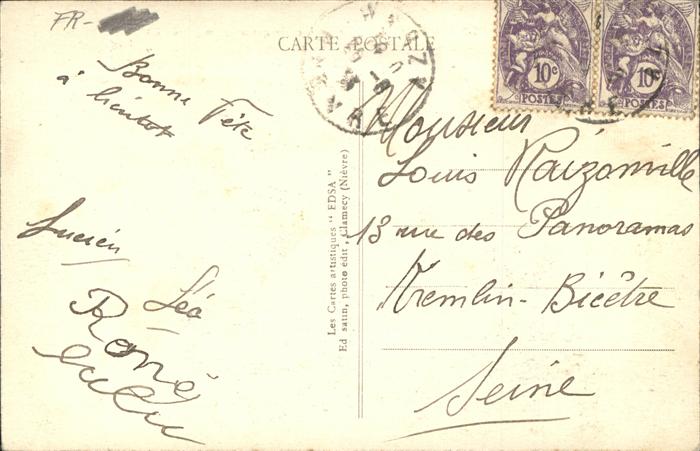 FR-
CARTE POSTALE
10c
POSTES
10c
POSTES
Bonne Fête
à bientôt
Lucien
Léo
René
Monsieur
Louis
13 rue des Panoramas
Kremlin-Bicêtre
Seine
Les Cartes artistiques "EDSA"
Ed satin, photo édit, Clamecy (Nièvre)